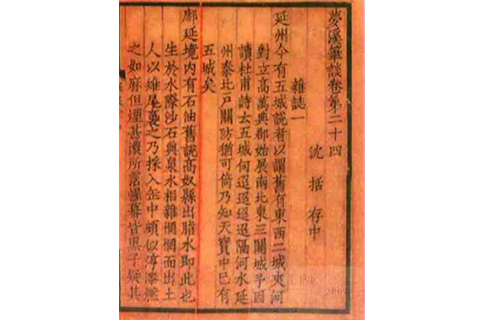 夢溪筆談卷第二十四
沈括存中
雜誌一
延州今有五城說者以謂舊有東西二城夾河
對立高萬典郡始展南北東三關城予因
讀杜甫詩云五城何迢迢迢迢隔河水延
州秦北戶關防猶可倚乃知天寶中已有
五城矣
鄜延境內有石油舊說高奴縣出脂水即此也
生於水際沙石與泉水相雜惘惘而出土
人以雉尾裛之乃採入缶中頗似淳漆燃
之如麻但煙甚濃所霑幄幕皆黑予疑其